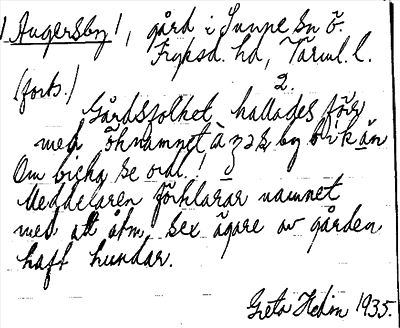 Augersby, gård i Sunne sn Ö.
Fryksd. hd, Värml. l.
(forts.) 2.
Gårdsfolket kallades förr
med öknamnet
Om bicka se ord.!
Meddelaren förklarar namnet
med att åtm. sex ägare av gården
haft hundar.
Greta Hedin 1935.